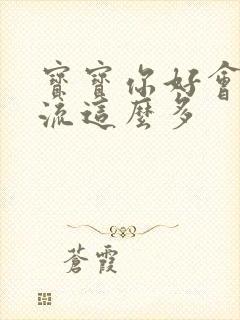 寶寶你好會
流這麼多
蒼霞